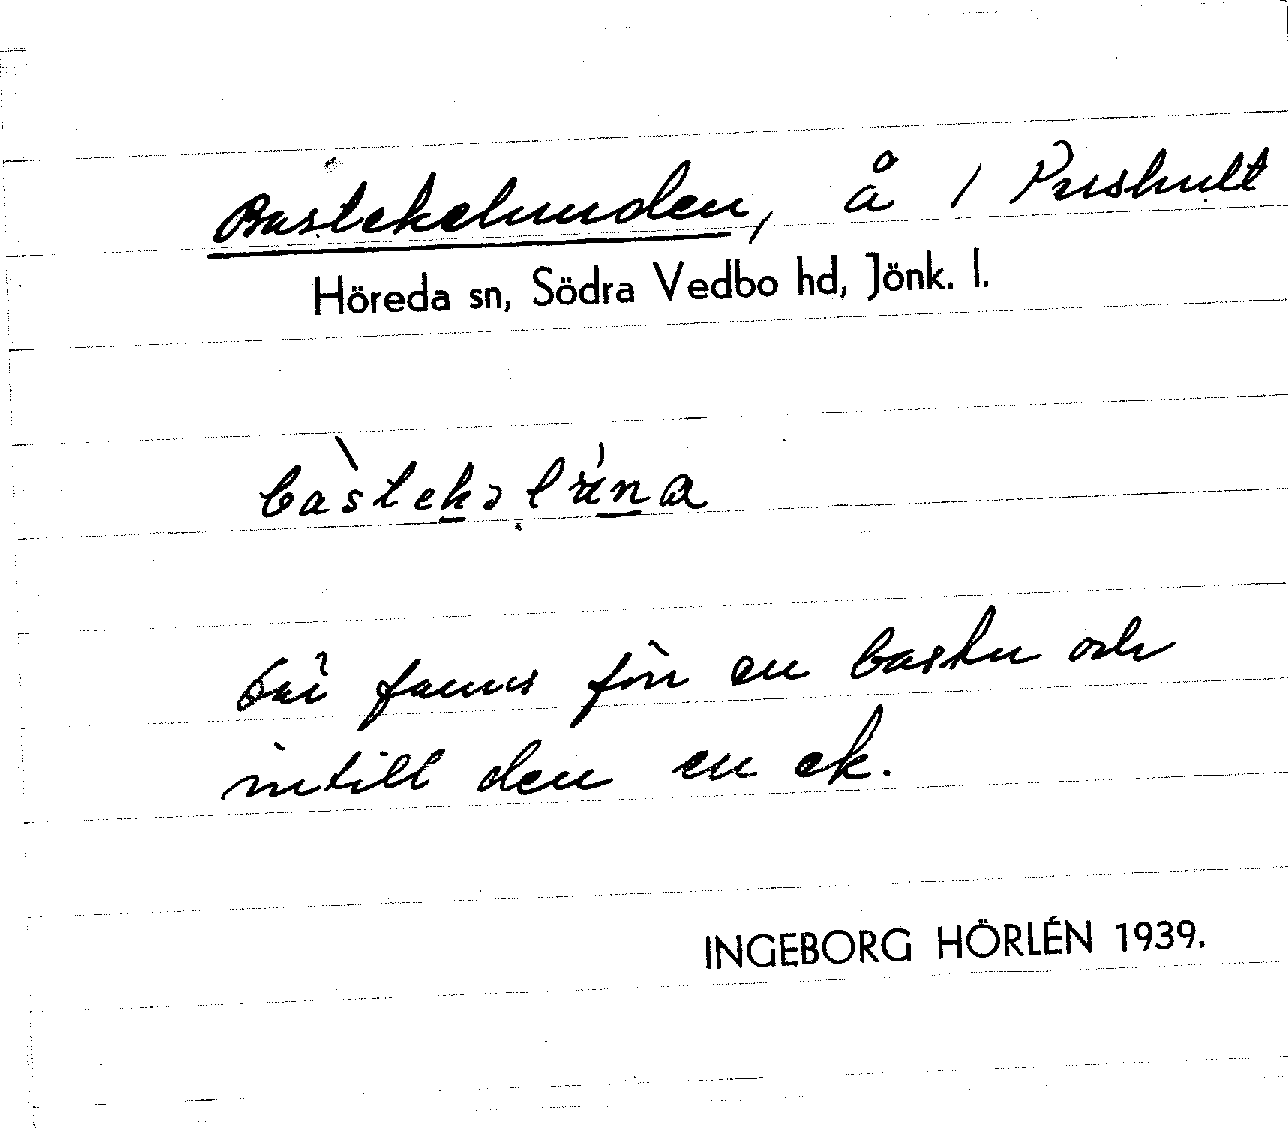 Bastekelunden, å 1 Prushult
Höreda sn, Södra Vedbo hd, Jönk. l.
bàstekəl
fanns förr en bastu och
intill den en ek.
INGEBORG HÖRLÉN 1939.